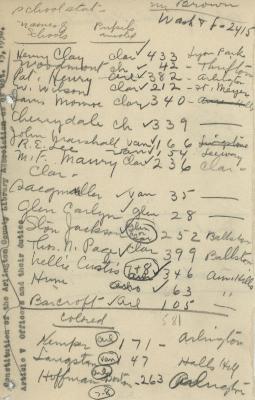 school stat-
Mr Brown
Wash & L - 2415
names of Schools
Pupils
Henry Clay Clar 433 Lyon Park
Woodmont Ch 42 - Thrifton
Pat. Henry 382 - Arlington
W. Wilson Clar 212 - Ft. Myer
James Monroe Clar 340 -
Cherrydale Ch 339 -
John Marshall Van 166
R. E. Lee 156
M. F. Maury Clar 236 Clar -
Clar -
Saegmuller Van 35 -
Glen Carlyn Glen 28
Ston. Jackson 252 Ballston
Thos. N. Page 399 Ballston
Nellie Custis 7+8 346
Hume 63 "
Barcroft 105 - "
581
Colored
Kemper 171 - Arlington
Langston Van 47 Halls Hill
Hoffman Boston - 263 Arlington
7-8
Constitution of the Arlington County Library Association
Article V Officers and their duties